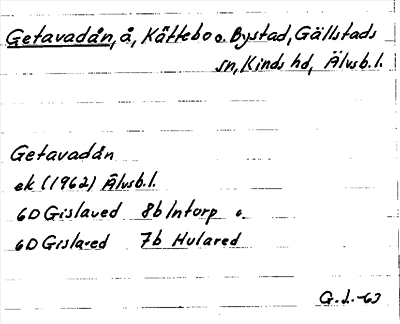 Getavadån, å, Kättebo o. Bystad, Gällstads
sn, Kinds hd, Älvsb.l.
Getavadån
ek (1962) Älvsb.l.
6D Gislaved 8b Intorp o.
6D Gislaved 7b Hulared
G.L.-63